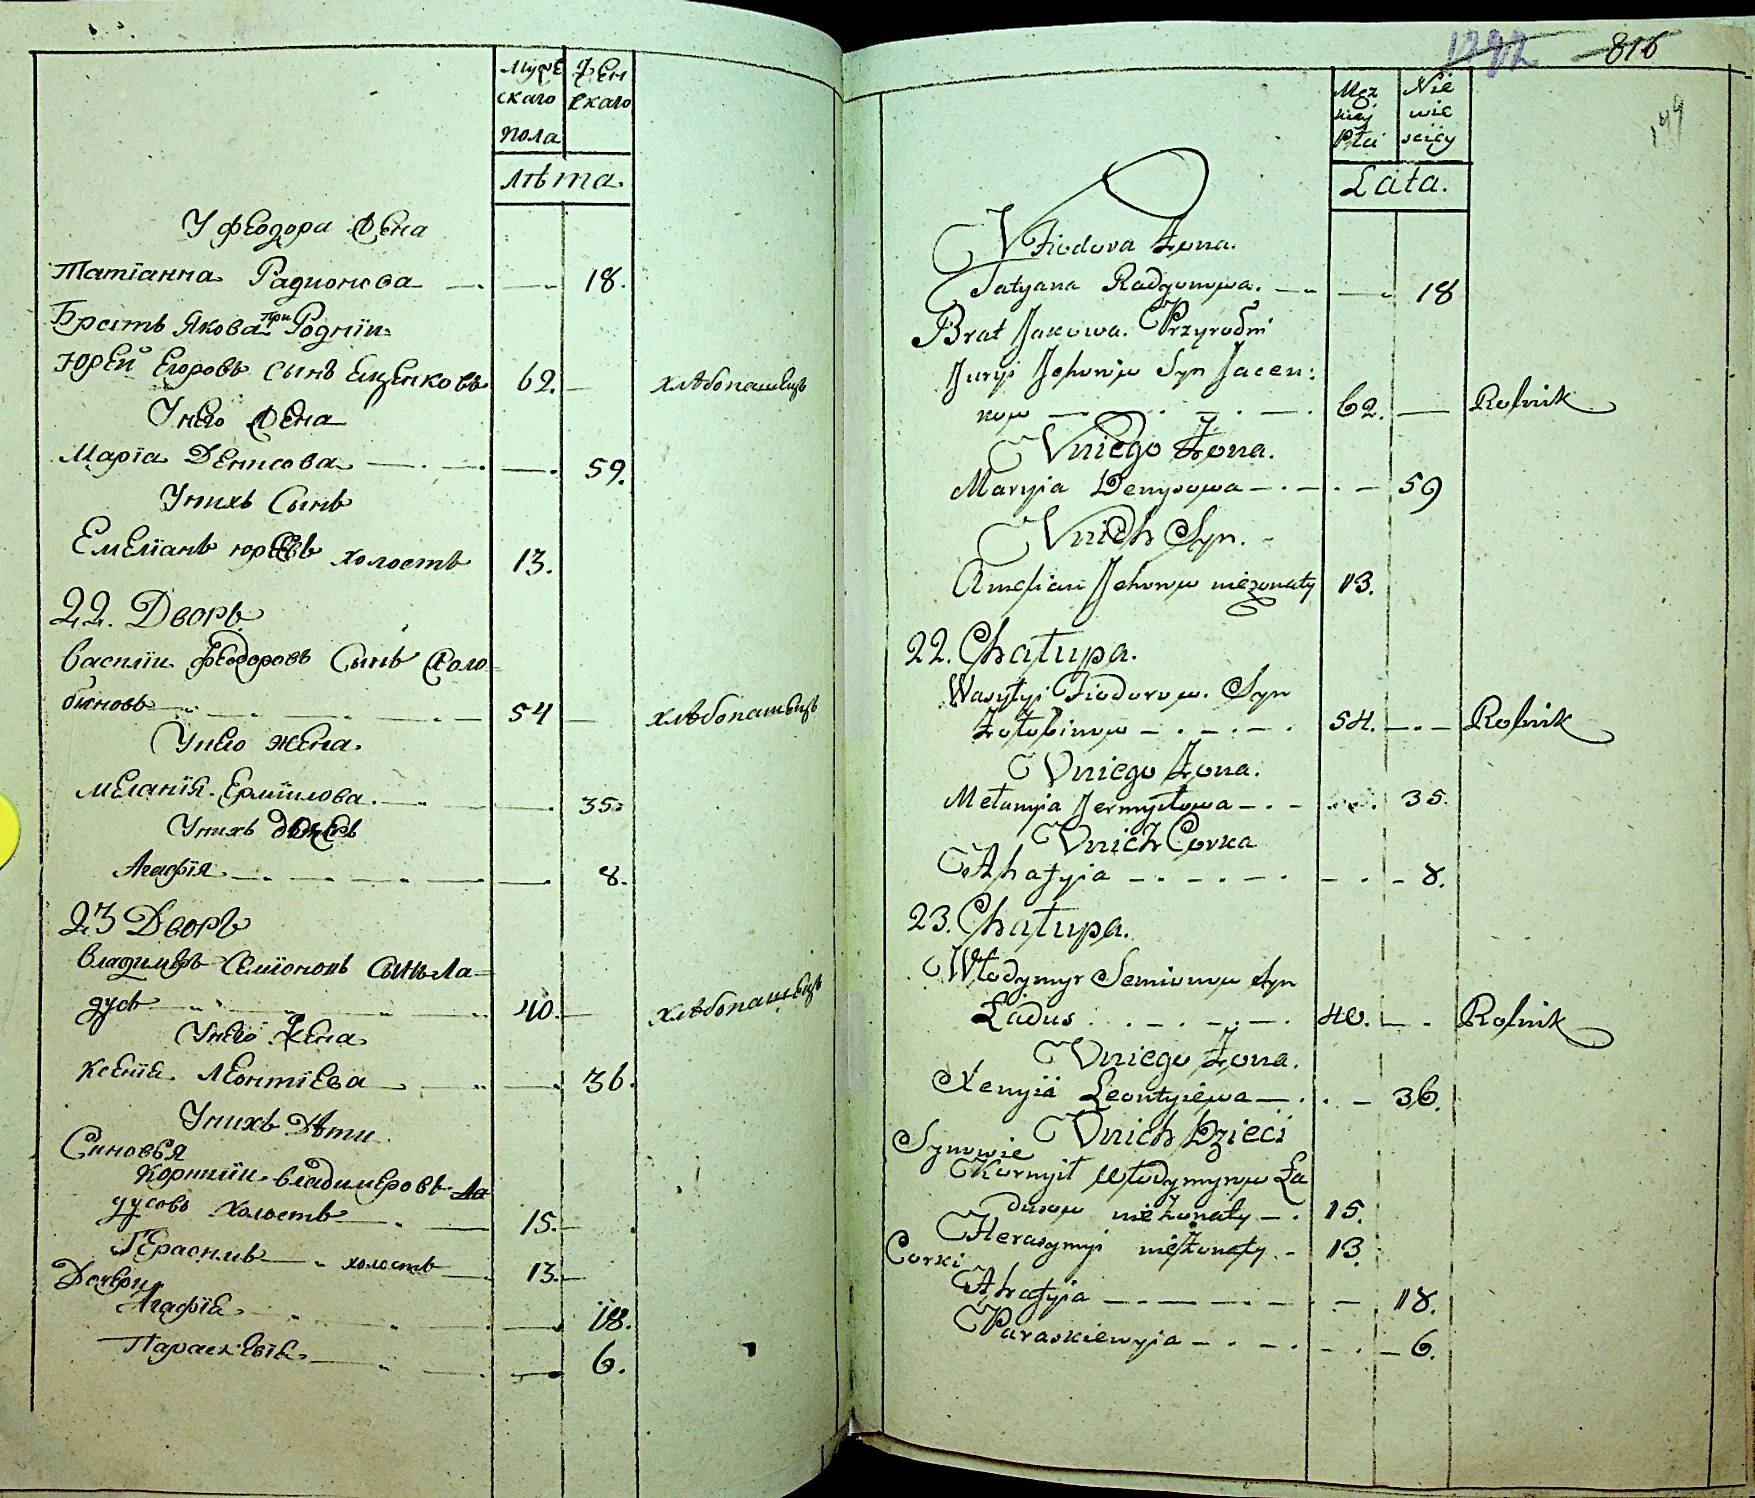 Мужескаго пола
Женскаго
Лѣта.
У Феодора Жена
Татіанна Радионова 18.
Братъ Якова при Родній
Юрей Егоровъ сынъ Еценковъ 62. хлѣбопашецъ
У него Жена
Марія Денисова 59.
У нихъ Сынъ
Емеліанъ юрьевъ холостъ 13.
22. Дворъ
Василій Феодоровъ Сынъ
54 хлѣбопашецъ
У него жена.
Меланія Ермилова. 35.
У нихъ дочерь
Агафія 8.
23 Дворъ
Владимеръ Семіоновъ Сынъ Ла-
дусъ 40. хлѣбопашецъ
У него Жена
Ксенія Леонтіева 36.
У нихъ Дѣти
Синовья
Корнилій владимеровъ Ла
дусовъ Холостъ 15.
Герасимъ холостъ 13.
Дочери
Агафія 18.
Параскевія 6.
1292 816
149
Męzkiej Płci
Niewiesciey
Lata.
U Fiodora Żona.
Tatyana Radyonowa. 18
Brat Jakowa. Przyrodni
Juryi Jehorow Syn Jacen:
kow 62. Rolnik
U niego Żona.
Maryia Denysowa 59
U nich Syn.
Amelian Jehorow nieżonaty 13.
22. Chałupa.
Wasylyi Fiodorow. Syn
Żołobinow 54. Rolnik
U niego Żona.
Melanyia Jermyłowa 35.
U nich Corka
Ahafyia 8.
23. Chałupa.
Włodymyr Semionow Syn
Ładus 40. Rolnik
U niego Żona.
Xenyia Leontyiewa 36.
U nich Dzieci
Synowie
Kornyił Włodymyrow Ła
dusow nieżonaty 15.
Herasymyi nieżonaty 13.
Corki
Ahafyia 18.
Paraskiewyia 6.